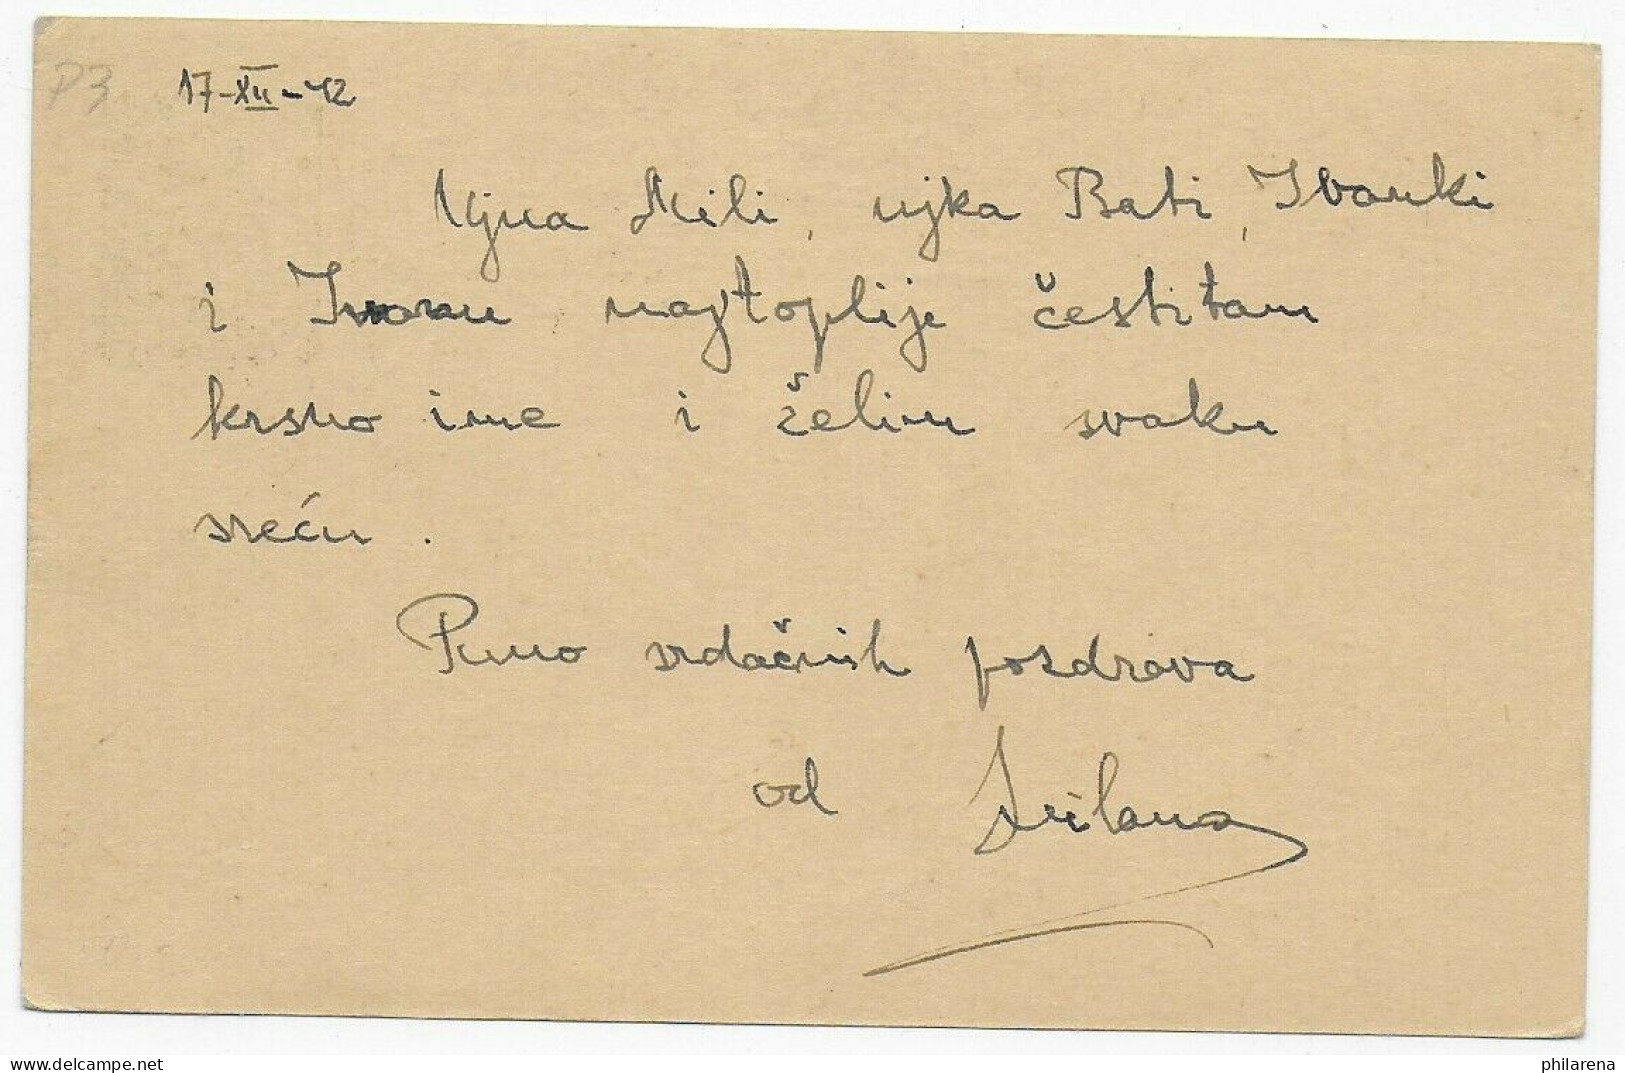 P3
17-XII-42
Ujna Mili, ujka Bati, Ivanki
i Ivanu najtoplije čestitam
krsno ime i želim svaku
sreću.
Puno srdačnih pozdrava
od Milana
philarena